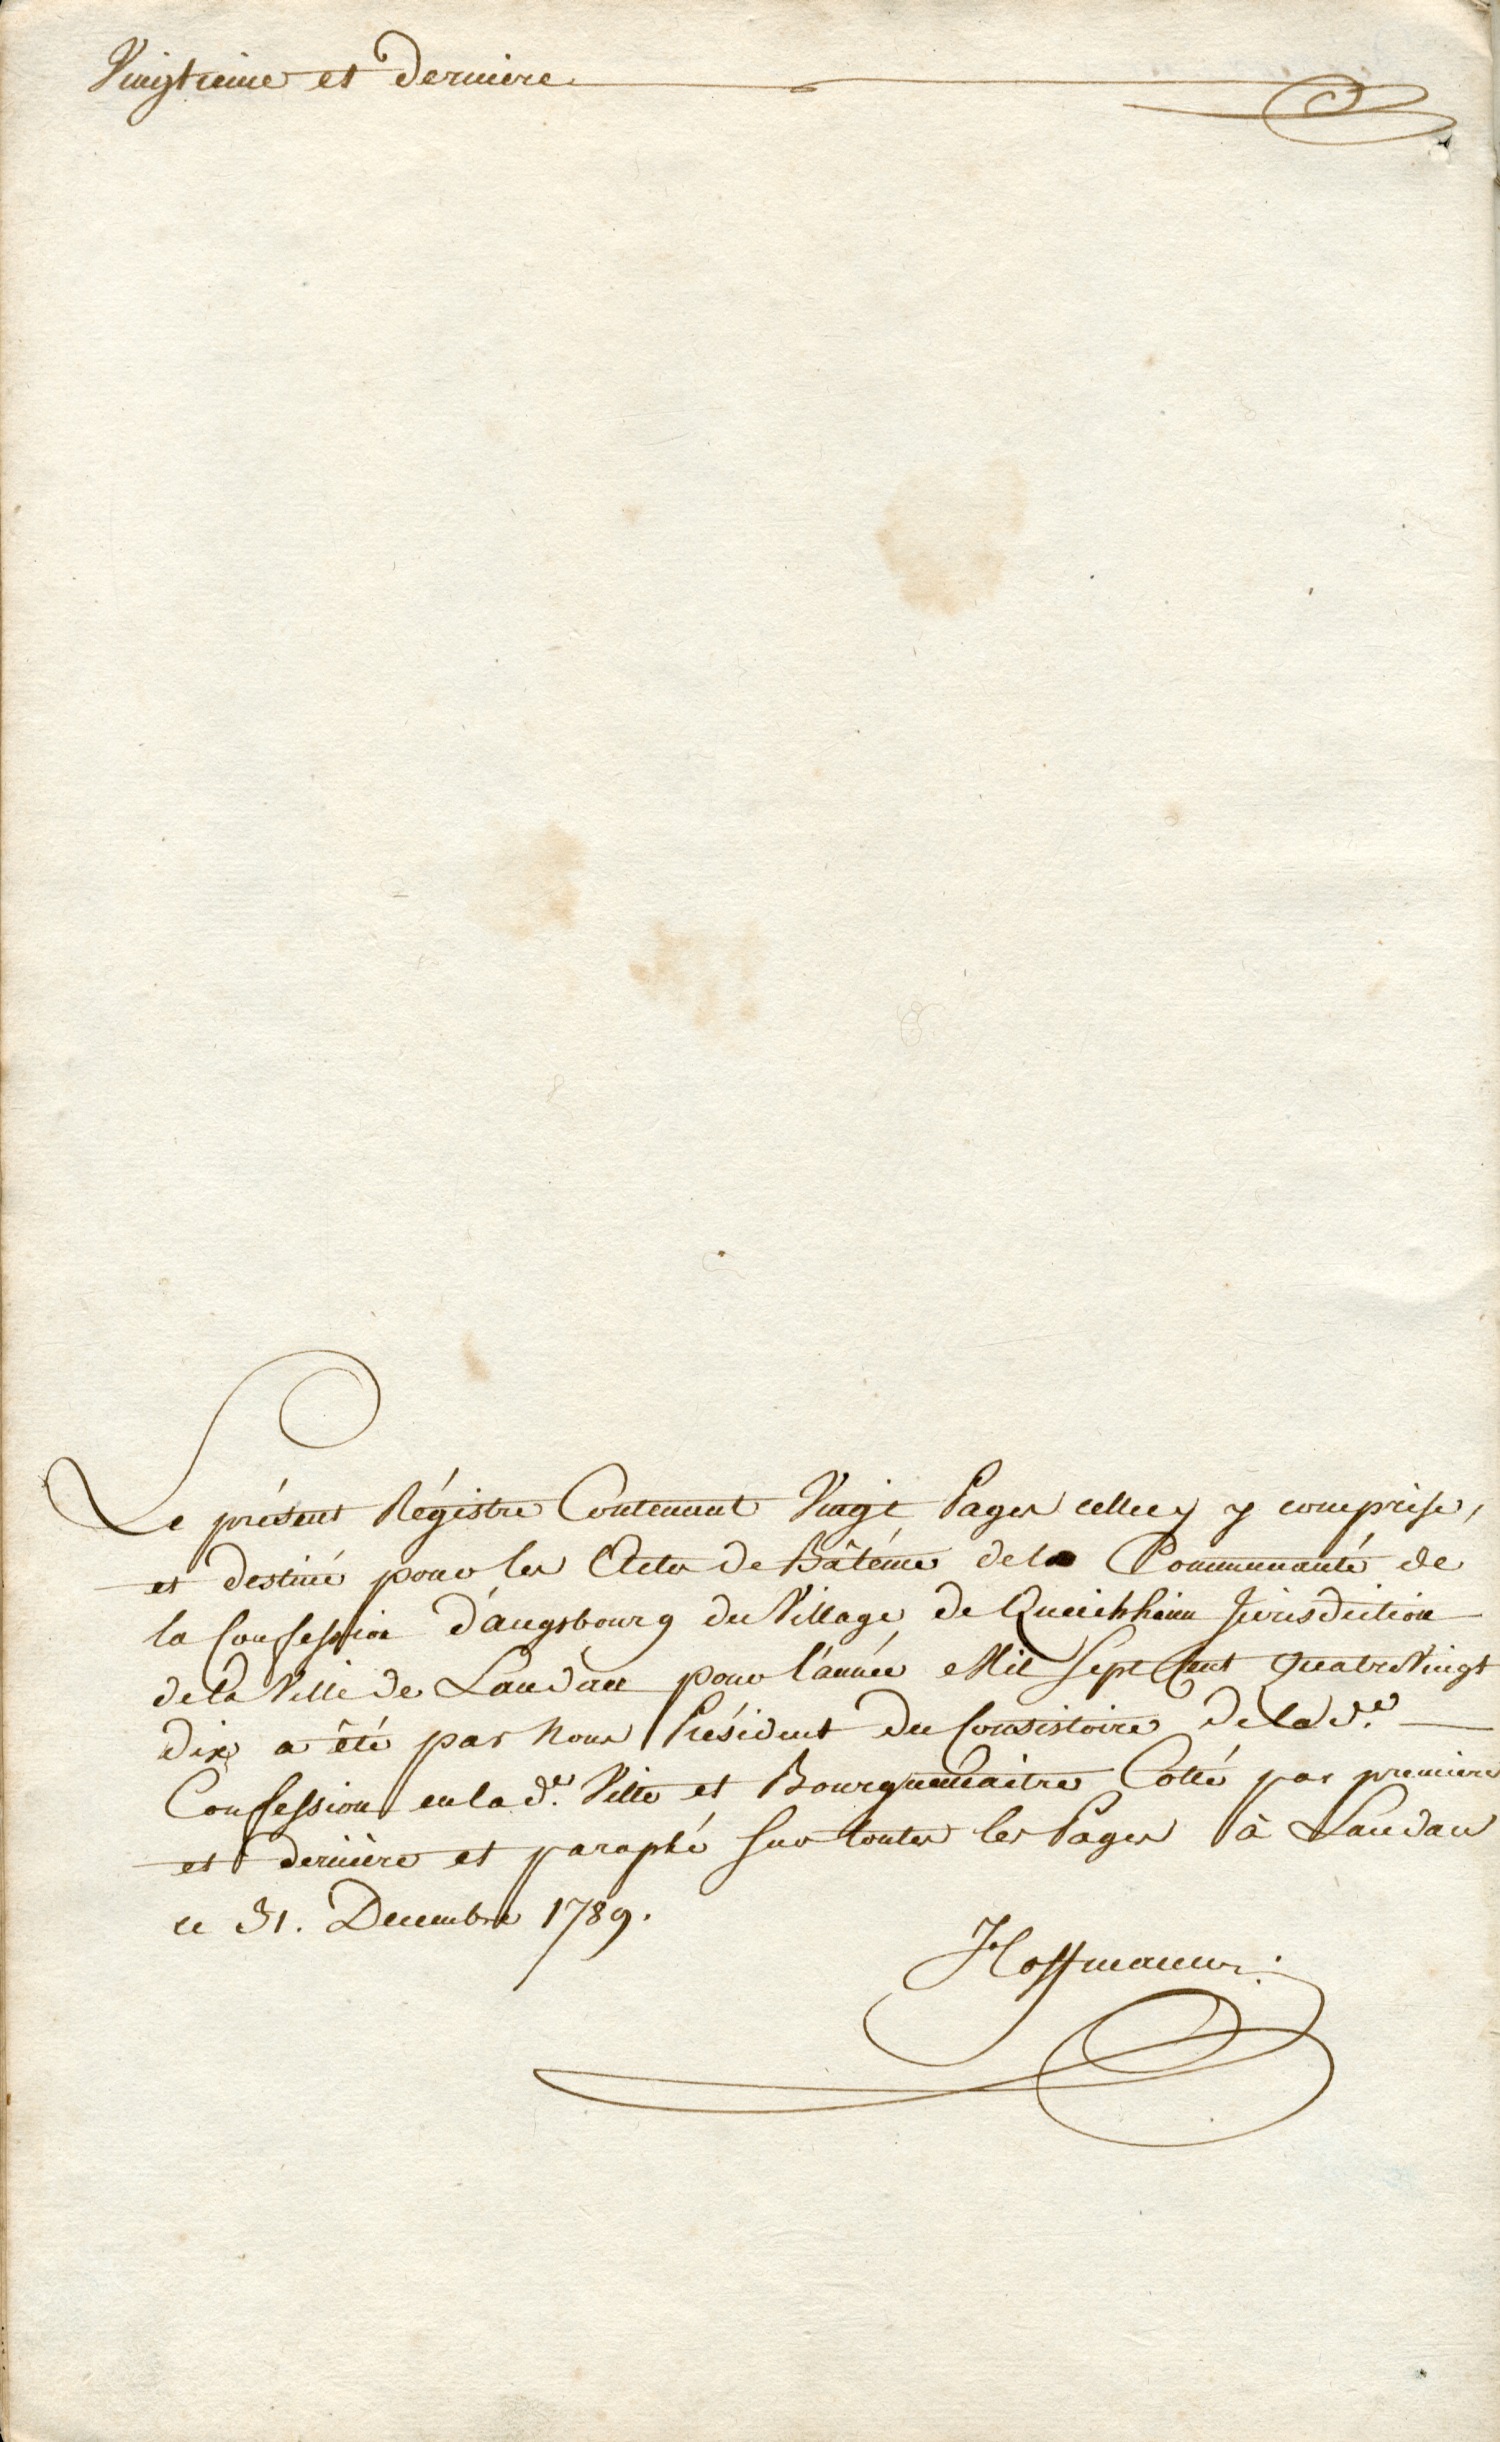 Vingtieme et derniere
Le présent Régistre Contenant Vingt Pages cellecy y comprise,
et destiné pour les Actes de Bâtéme de la Communauté de
la Confession d'augsbourg du Village de Queichheim Jurisdiction
de la Ville de Landau pour l'année Mil Sept Cent Quatre Vingt
dix a êté par Nous Président du Consistoire de la d.e
Confession en la d.e Ville et Bourguemaitre Cotté par premiere
et derniére et paraphé sur toutes les Pages à Landau
ce 31. Decembre 1789.
Hoffmann